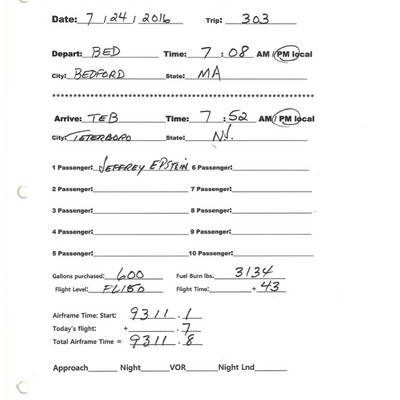 Date: 7 / 24 / 2016 Trip: 303
Depart: BED Time: 7 : 08 AM / PM local
City: BEDFORD State: MA
Arrive: TEB Time: 7 : 52 AM / PM local
City: TETERBORO State: NJ.
1 Passenger: JEFFREY EPSTEIN 6 Passenger:
2 Passenger: 7 Passenger:
3 Passenger: 8 Passenger:
4 Passenger: 9 Passenger:
5 Passenger: 10 Passenger:
Gallons purchased: 600 Fuel Burn lbs. 3134
Flight Level: FL180 Flight Time: + 43
Airframe Time: Start: 9311 . 1
Today's flight: + . 7
Total Airframe Time = 9311 . 8
Approach Night VOR Night Lnd